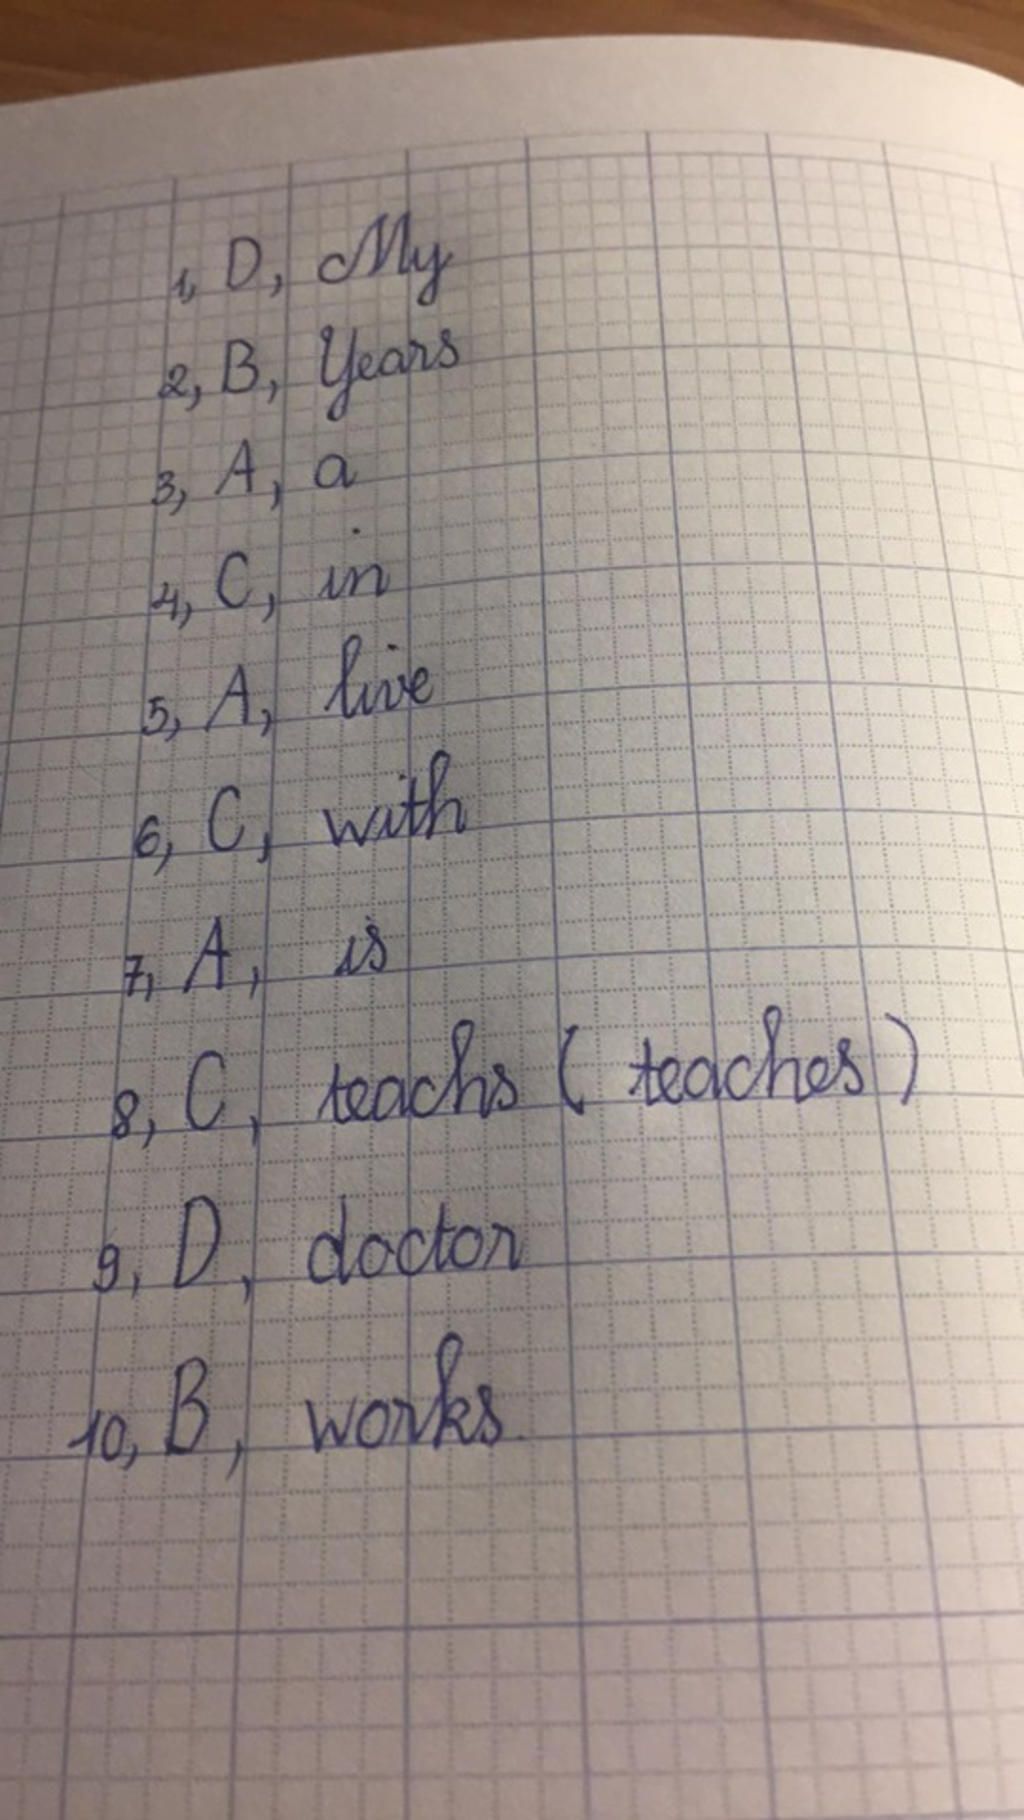 1, D, My
2, B, Years
3, A, a
4, C, in
5, A, live
6, C, with
7, A, is
8, C, teachs ( teaches )
9, D, doctor
10, B, works